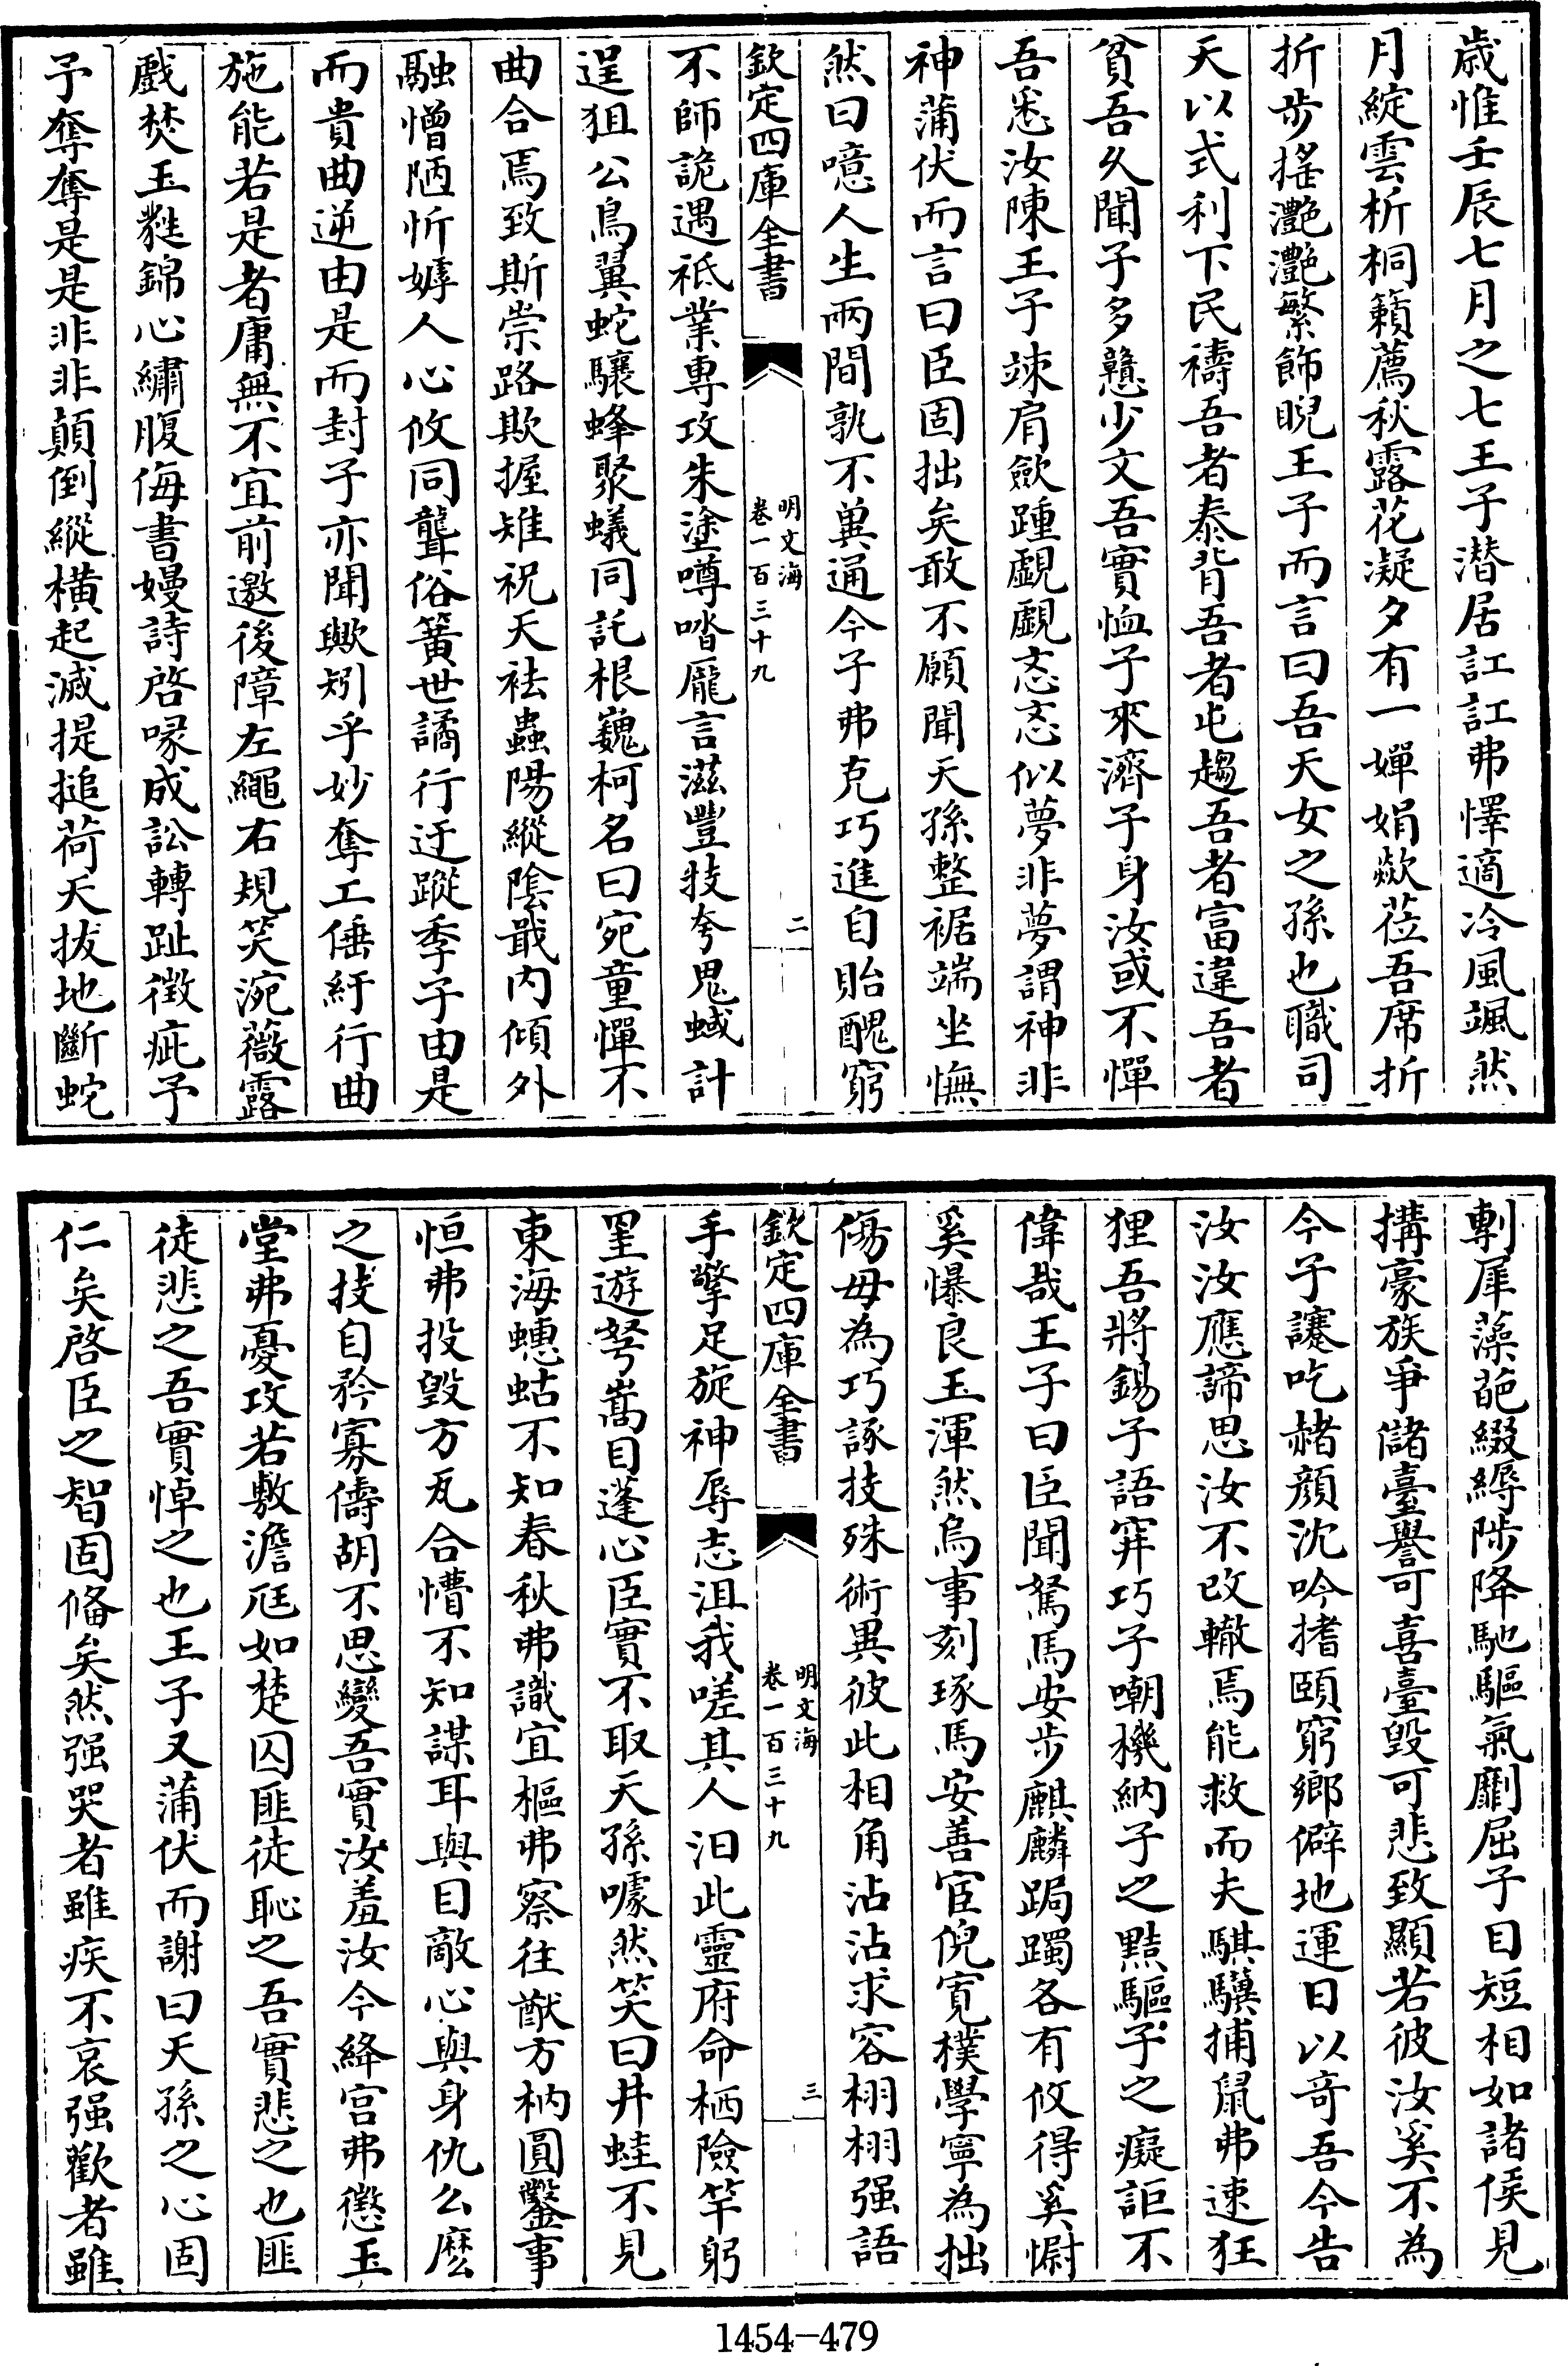 歳惟壬辰七月之七王子潜居訌訌弗懌適冷風颯然
月綻雲析桐籟薦秋露花凝夕有一嬋娟歘莅吾席折
折步摇灧灧繁飾睨王子而言曰吾天女之孫也職司
天以式利下民禱吾者泰背吾者屯趨吾者富違吾者
貧吾久聞子多戇少文吾實恤子來濟子身汝或不憚
吾悉汝陳王子竦肩斂踵覷覷忞忞似夢非夢謂神非
神蒲伏而言曰臣固拙矣敢不願聞天孫整裾端坐憮
然曰噫人生兩間孰不兾通今子弗克巧進自貽醜窮
欽定四庫全書
明文海
卷一百三十九
二
不師詭遇祗業專攻朱塗噂喈厖言滋豐技夸鬼蜮計
逞狙公鳥翼蛇驤蜂聚蟻同託根巍柯名曰宛童憚不
曲合焉致斯崇路欺握雉祝天袪蟲陽縱陰戢内傾外
融憎陋忻嫭人心攸同聾俗簧世譎行迂蹤季子由是
而貴曲逆由是而封子亦聞歟矧乎妙奪工倕紆行曲
施能若是者庸無不宜前邀後障左繩右規笑涴薇露
戲焚玉蕤錦心繡腹侮書嫚詩啓喙成訟轉趾徴疵予
予奪奪是是非非顛倒縱横起滅提搥荷天拔地斷蛇
剸犀藻葩綴縟陟降馳驅氣劘屈子目短相如諸侯見
搆豪族爭儲臺譽可喜臺毀可悲致顯若彼汝奚不為
今子謇吃赭顔沈吟揞頤窮鄉僻地運日以竒吾今告
汝汝應諦思汝不改轍焉能救而夫騏驥捕鼠弗速狂
狸吾將錫子語穽巧子嘲機納子之黠驅子之癡詎不
偉哉王子曰臣聞駑馬安步麒麟跼躅各有攸得奚慰
奚懪良玉渾然烏事刻琢馬安善宦倪寛樸學寧為拙
傷毋為巧諑技殊術異彼此相角沾沾求容栩栩强語
欽定四庫全書
明文海
卷一百三十九
三
手擎足旋神辱志沮我嗟其人汩此靈府命栖險竿躬
罣遊弩嵩目蓬心臣實不取天孫噱然笑曰井蛙不見
東海蟪蛄不知春秋弗識宜樞弗察往猷方枘圓鑿事
恒弗投毀方瓦合懵不知謀耳與目敵心與身仇么麽
之技自矜寡儔胡不思變吾實汝羞汝今絳宫弗懲玉
堂弗憂攻若敷澹尫如楚囚匪徒恥之吾實悲之也匪
徒悲之吾實悼之也王子又蒲伏而謝曰天孫之心固
仁矣啓臣之智固偹矣然强哭者雖疾不哀强歡者雖
1454-479